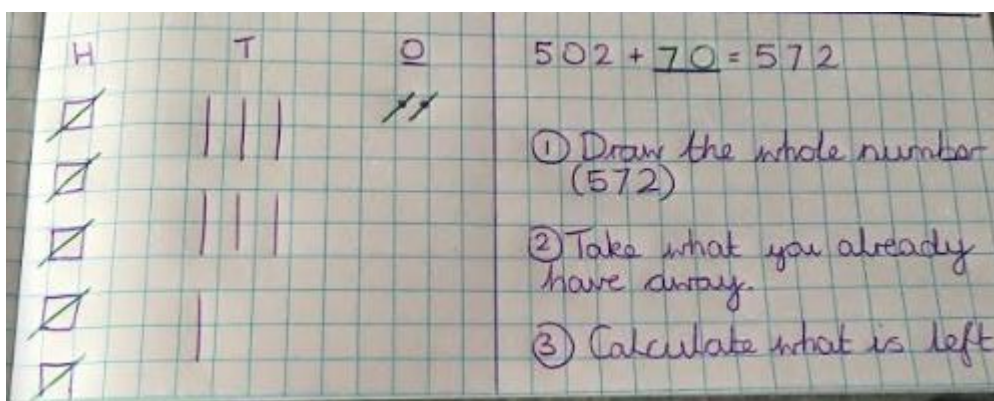 H T O
502 + 70 = 572
① Draw the whole number
(572)
② Take what you already
have away.
③ Calculate what is left